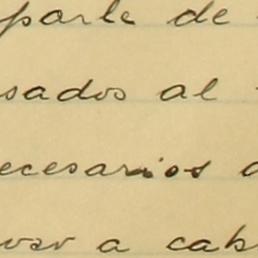 parte de
sados al
ecesarios
a cab